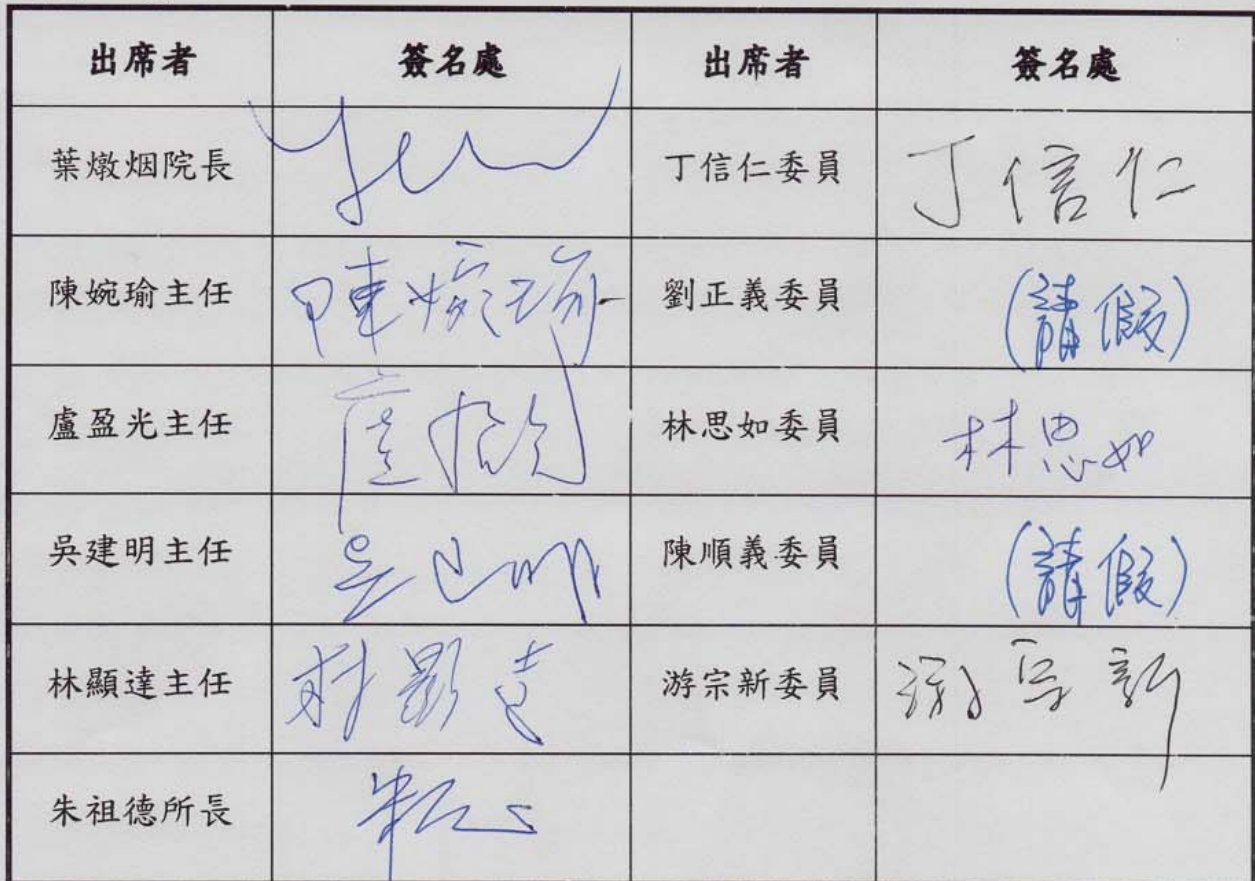 出席者 簽名處 出席者 簽名處
葉燉烟院長 丁信仁委員 丁信仁
陳婉瑜主任 陳婉瑜 劉正義委員 (請假)
盧盈光主任 林思如委員 林思如
吳建明主任 陳順義委員 (請假)
林顯達主任 林顯達 游宗新委員 游宗新
朱祖德所長